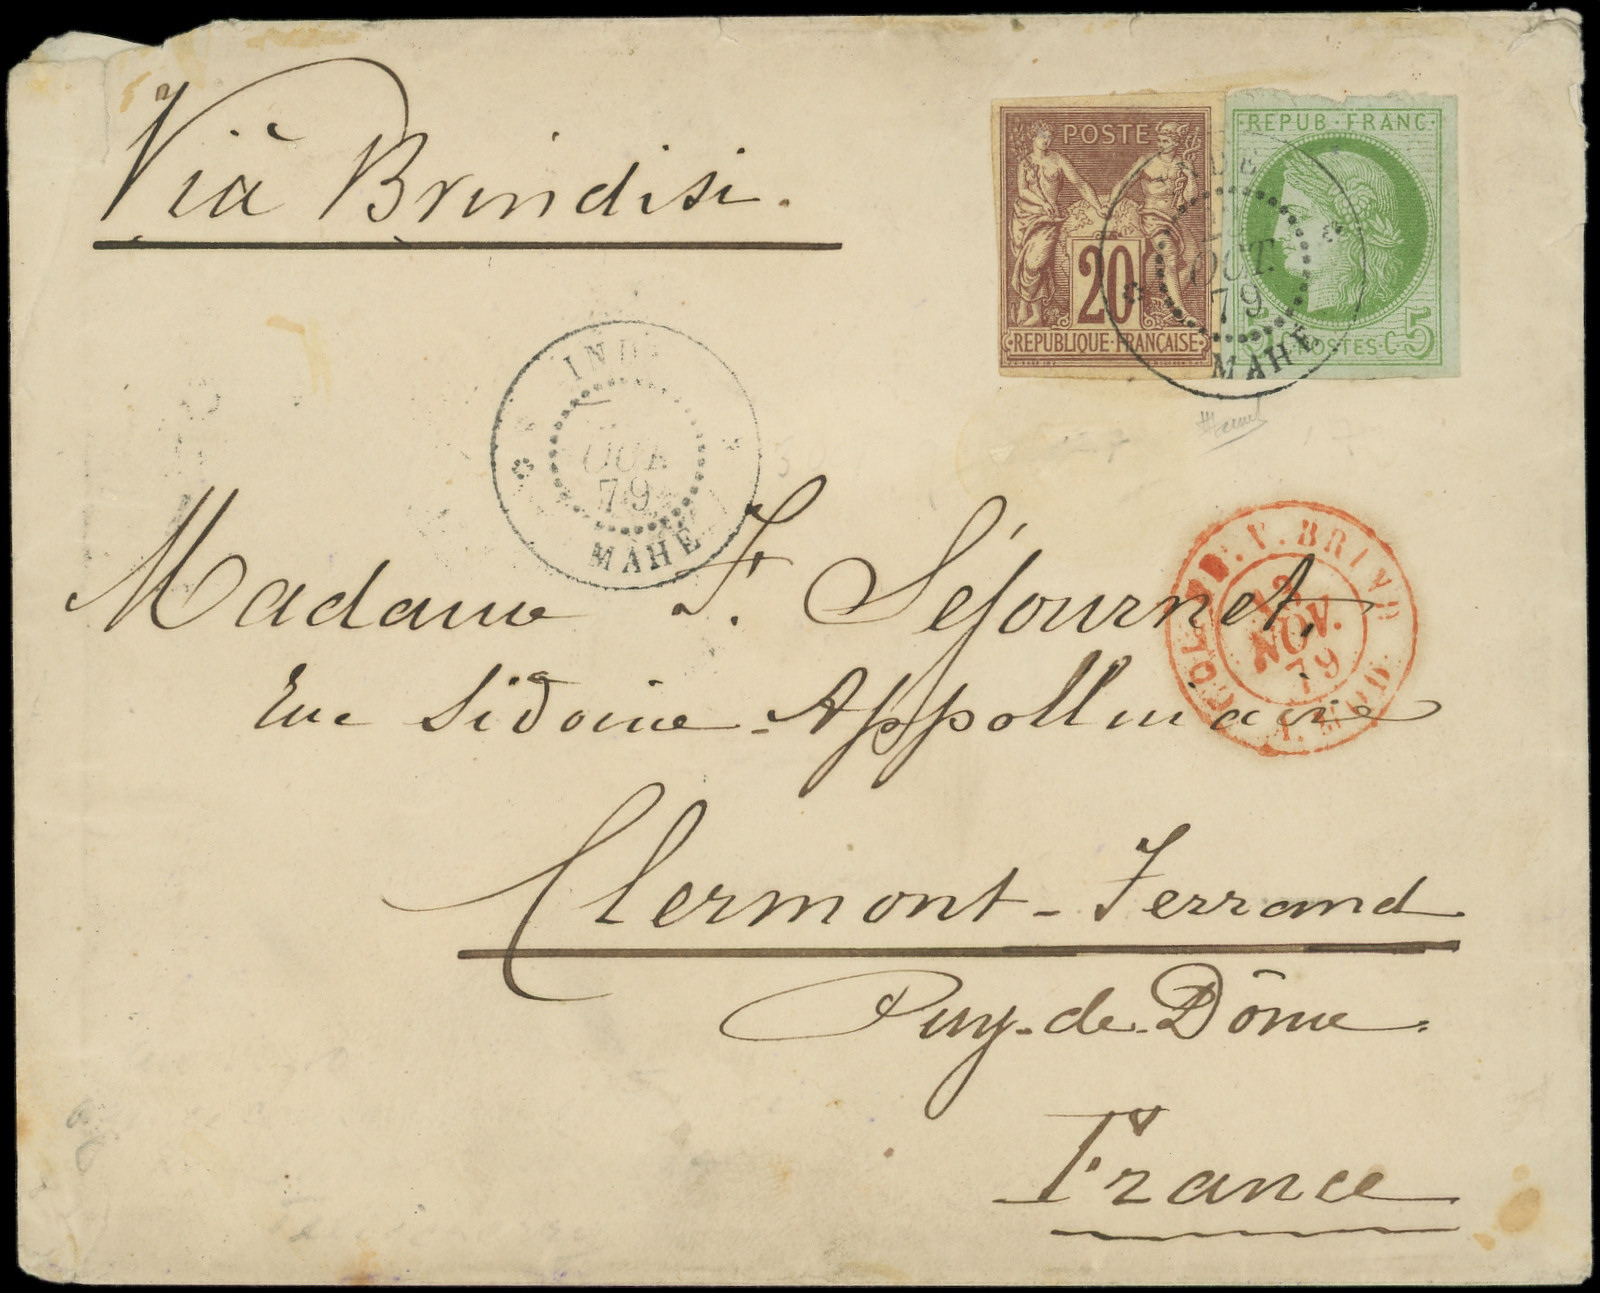 Viâ Brindisi.
POSTE
20
REPUBLIQUE FRANÇAISE
REPUB · FRANC ·
POSTES · C · 5
OCT.
79
MAHE
INDE
OCT.
79
MAHE
Madame F. Séjournet,
Rue Sidoine-Appollinaire
Clermont-Ferrand
Puy-de-Dôme.
France
V. BRIND.
NOV.
79
MOD.